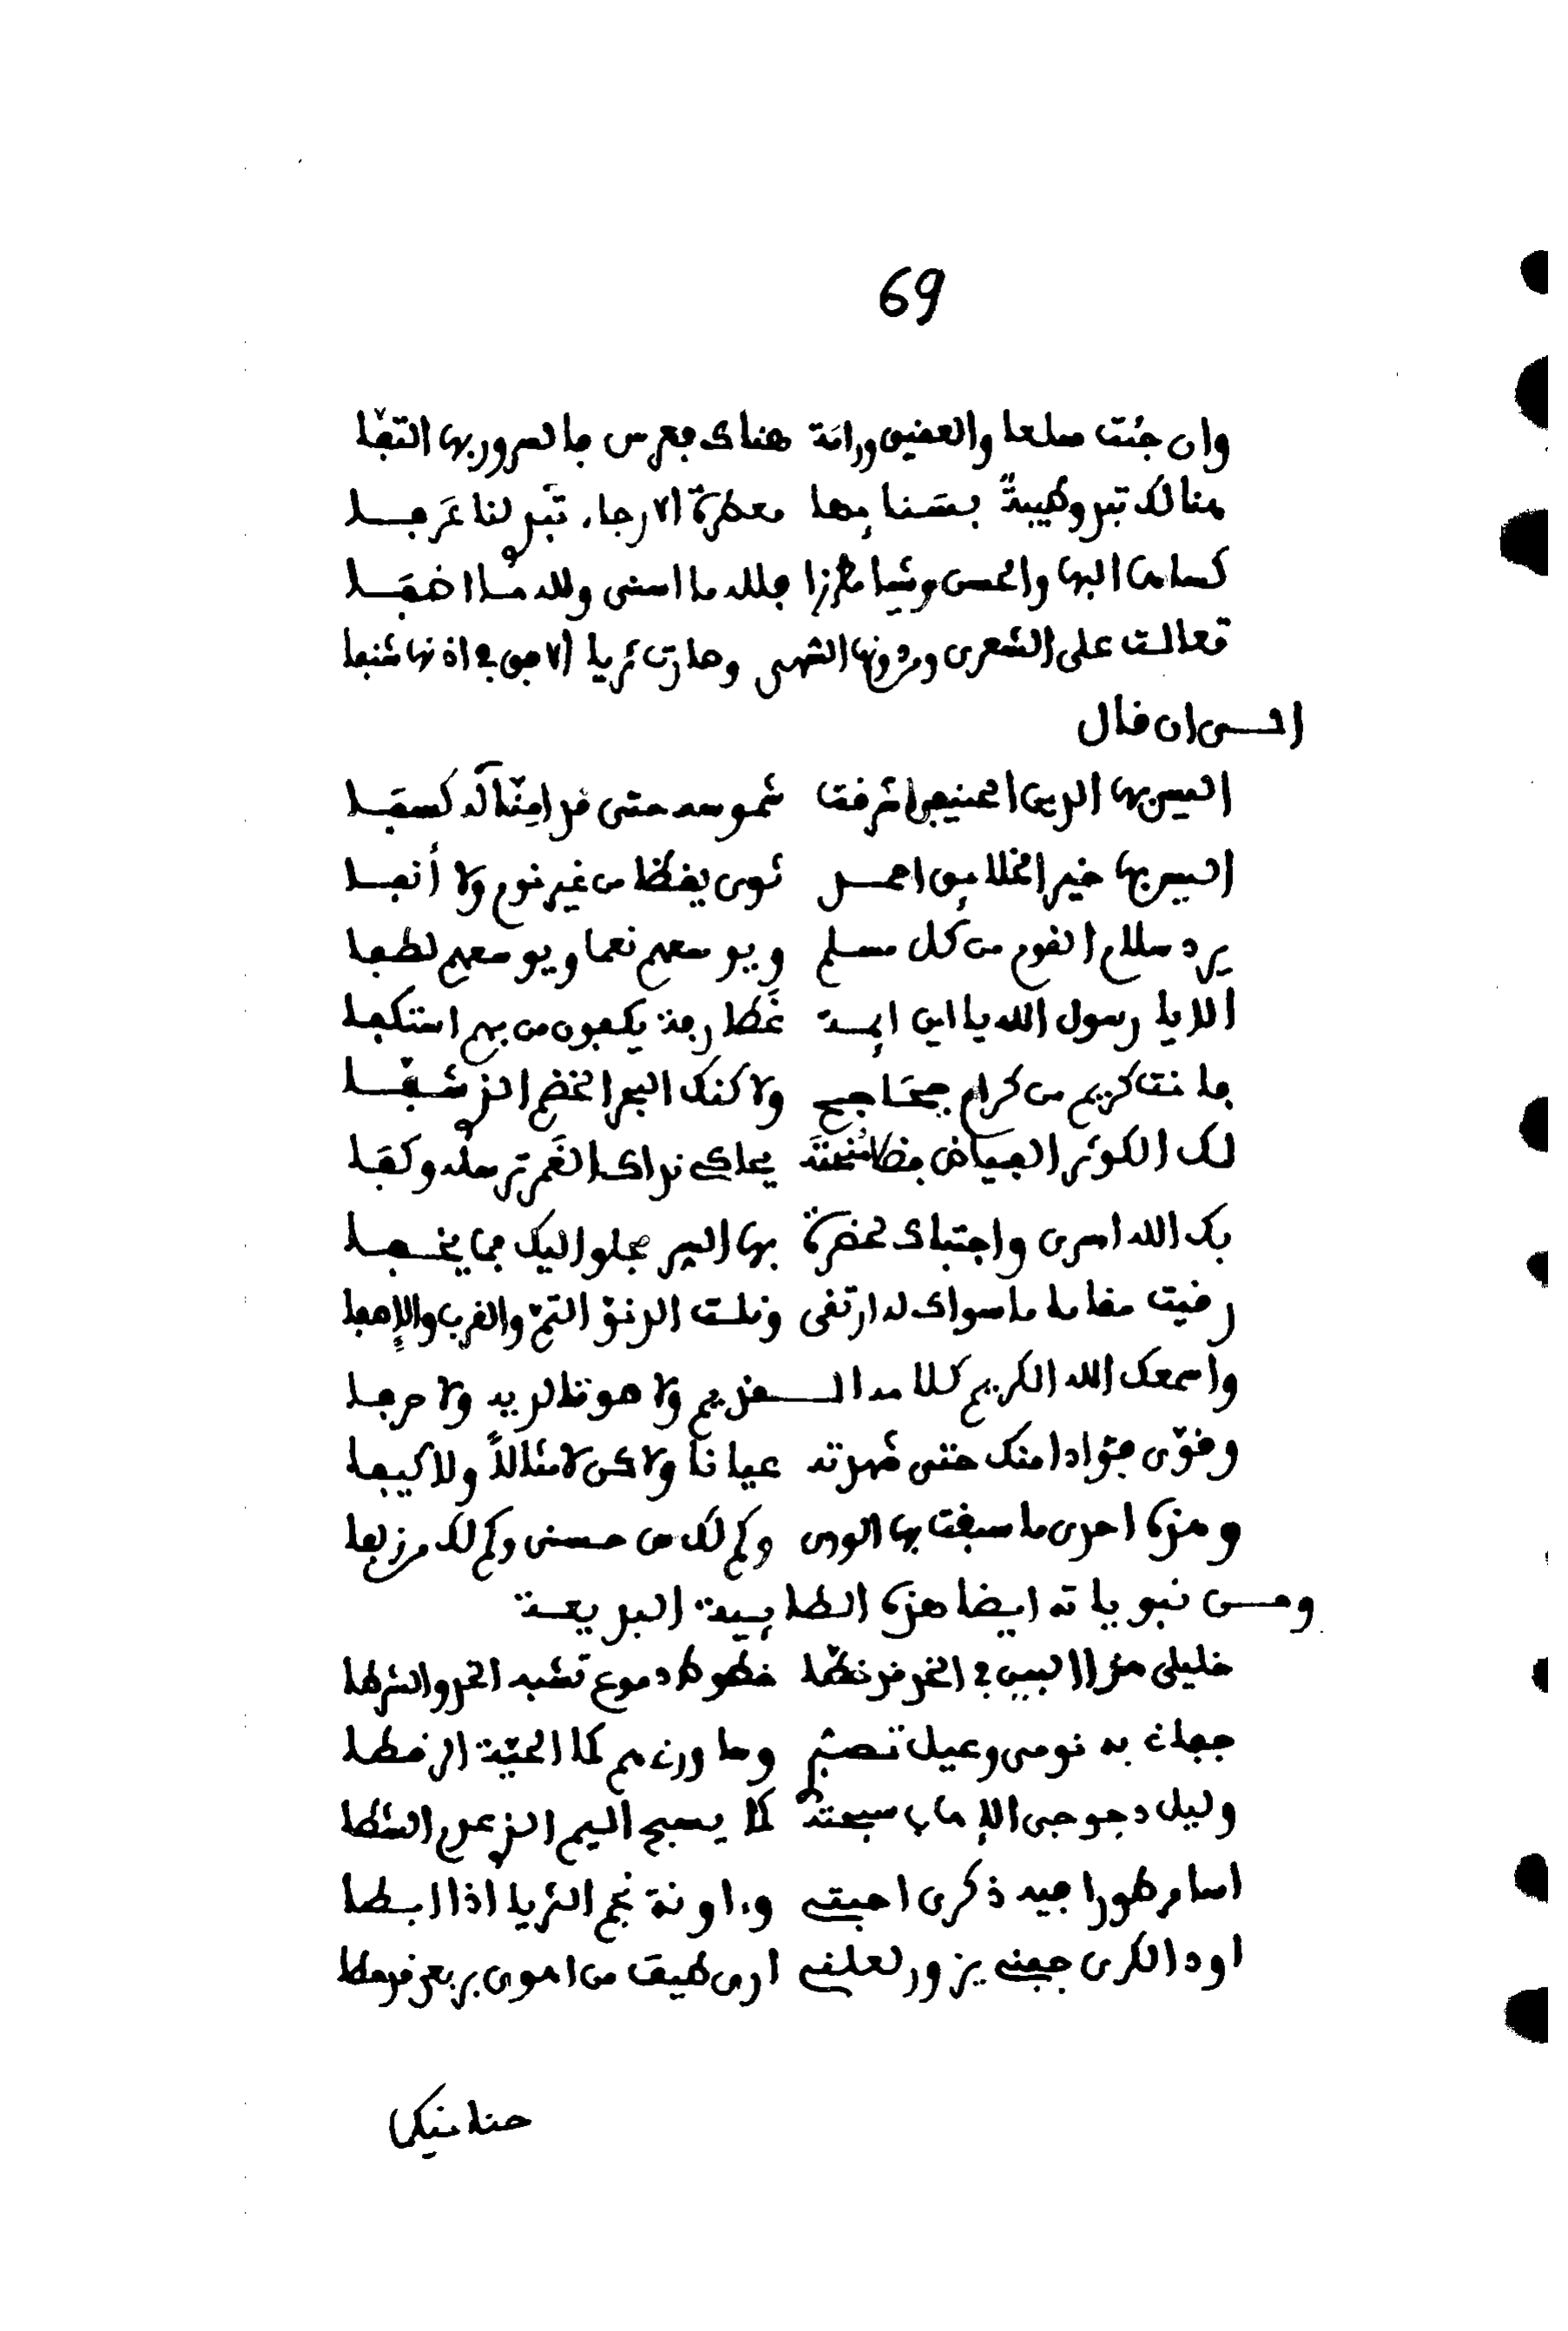 69
وان جئت سلعا والعقيق ورامة هناك فعرس فالسرور بها التفا
هنالك تبدو طيبة بسنائها معطرة الارجاء تبدو لنا عرفا
كساها البها والحسن وشيا مطرزا فلله ما اسنى ولله ما اضفا
تعالت على الشعرى ودونها السهى وصارت ثريا الافق في اذنها شنفا
الى ان قال
اليس بها الدين الحنيفي اشرقت شموسه حتى قد امنا له كسفا
اليس بها خير الخلائق احمد ثوى يقظا من غير نوم ولا أغفا
يرد سلام القوم من كل مسلم ويوسعهم نعما ويوسعهم لطفا
الا يا رسول الله يا ابن ايمة غطارفة يكفون من بهم استكفا
فانت كريم من كرام جحاجح ولاكنك البحر الخضم الذي شفا
لك الكوثر الفياض فضلا منحته يحاكي نداك الغمر ترسله وكفا
بك الله اسرى واجتباك لحضرة بها السر مجلو اليك فما يخفا
رقيت مقاما ما سواك له ارتقى ونلت الدنو التم والقرب والإصفا
واسمعك الله الكريم كلامه القديم ولا صوتا لديه ولا حرفا
وقوى فؤادا منك حتى شهدته عيانا ولاكن لا مثالا ولا كيفا
وهذه احدى ما سبقت بها الورى وكم لك من حسنى وكم لك من زلفا
ومن نبوياته ايضا هذه الطائية البديعة
خليلي هذا البين في الخد قد خطا خطوط دموع تشبه الخد والشرطا
جفان به نومي وعيل تصبري وساورني هم كما الحية الرقطا
وليل دجوجي الإهاب سبحته كما يسبح اليم الذي عدم الشطا
اسامر طورا فيه ذكرى احبتي وءاونة نجم الثريا اذا ابطا
اود الكرى جفني يزور لعلني ارى طيف من اهوى بربعي قد حطا